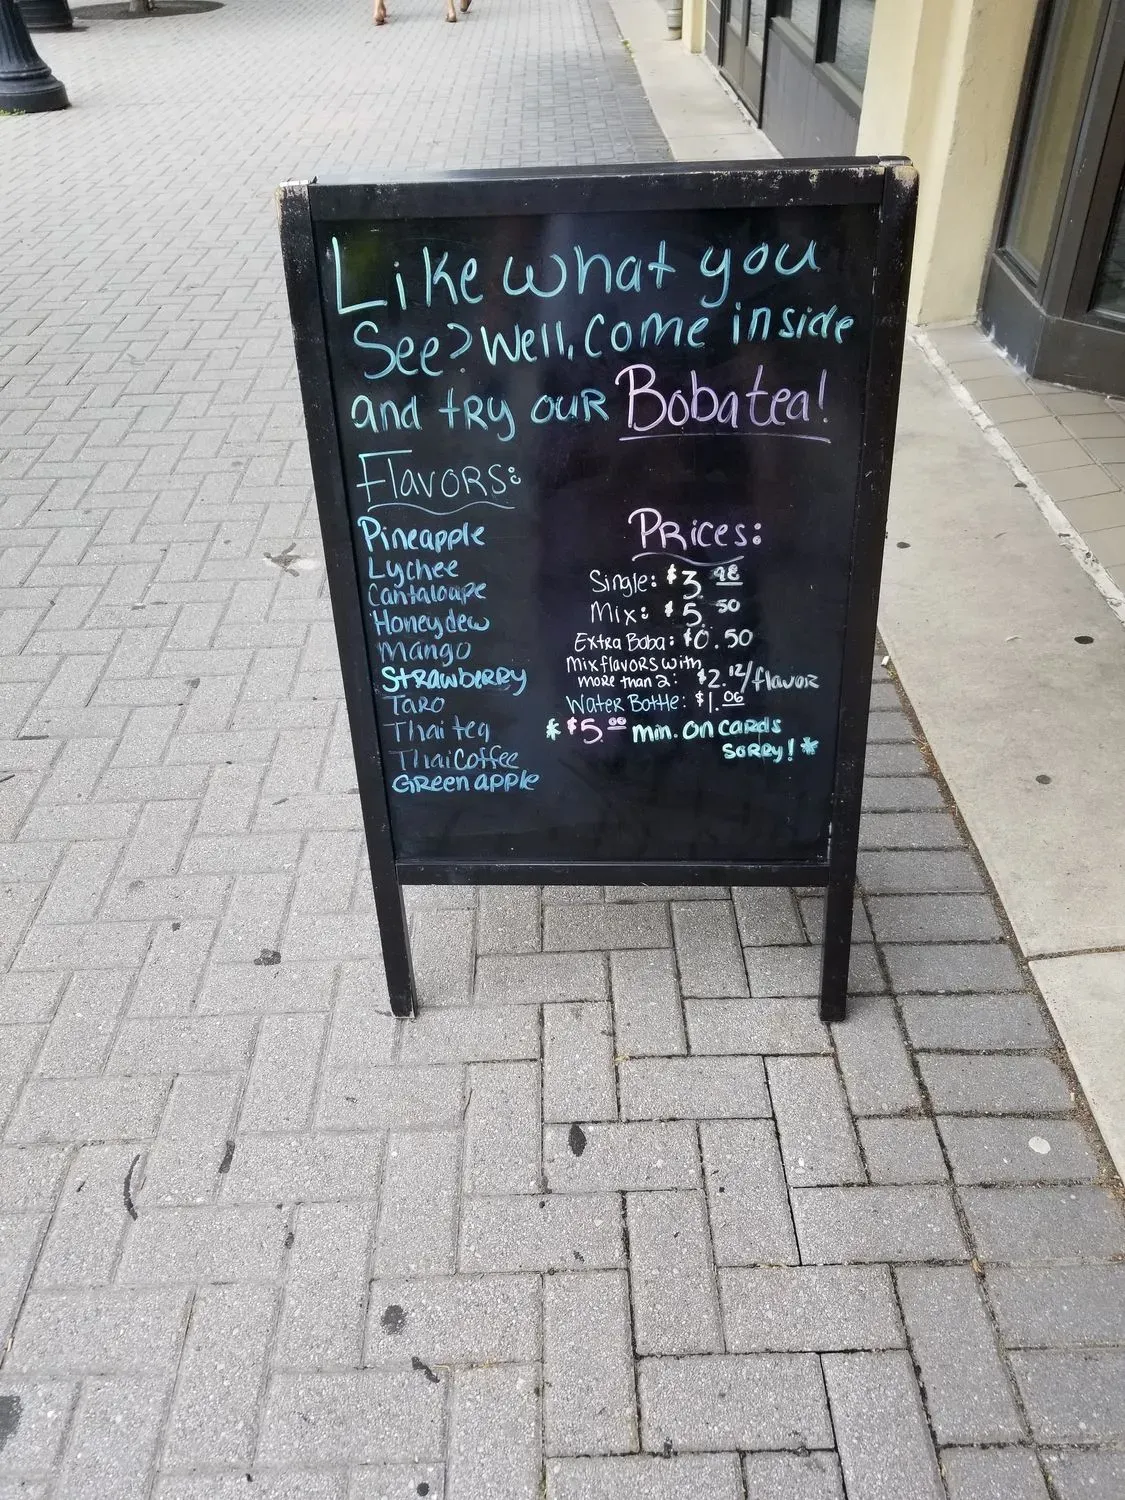 Like what you
See? Well, Come inside
and try our Boba tea!
Flavors:
Pineapple
Lychee
Cantaloape
Honeydew
Mango
Strawberry
Taro
Thai tea
Thai Coffee
Green apple
Prices:
Single: $3.98
Mix: $5.50
Extra Boba: $0.50
Mix flavors with
more than 2: $2.12/flavor
Water Bottle: $1.06
* $5.00 min. on cards
Sorry! *